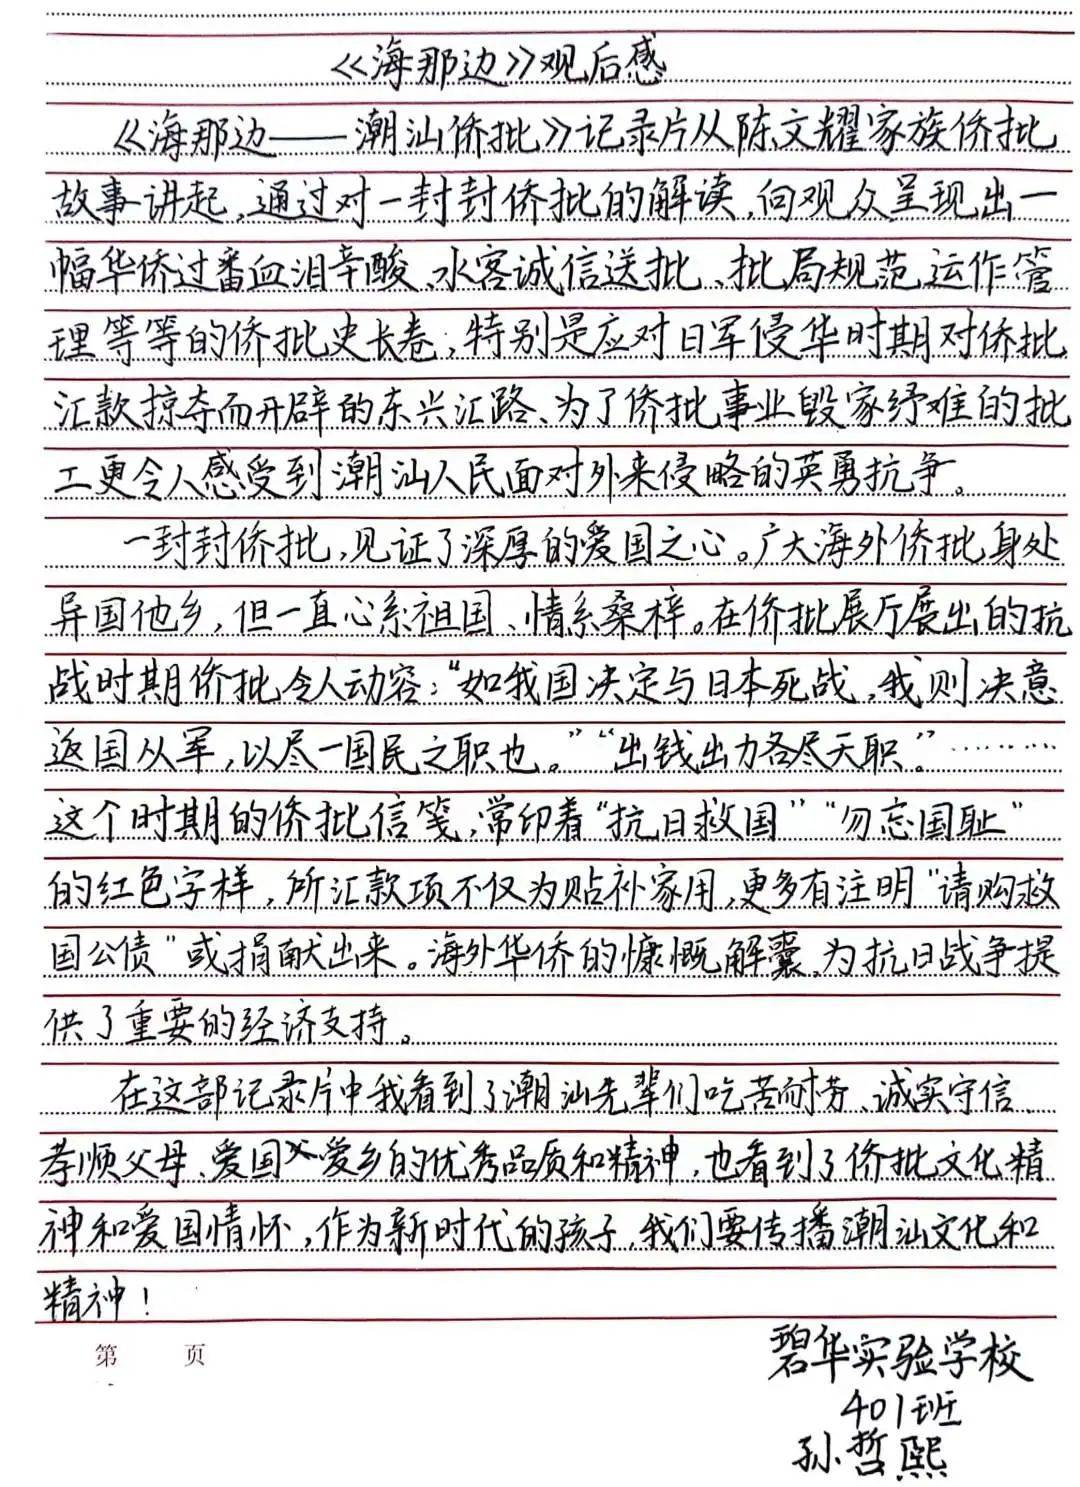 《海那边》观后感
《海那边——潮汕侨批》记录片从陈文耀家族侨批
故事讲起,通过对一封封侨批的解读,向观众呈现出一
幅华侨过番血泪辛酸、水客诚信送批、批局规范运作管
理等等的侨批史长卷;特别是应对日军侵华时期对侨批
汇款掠夺而开辟的东兴汇路、为了侨批事业毁家纾难的批
工更令人感受到潮汕人民面对外来侵略的英勇抗争。
一封封侨批,见证了深厚的爱国之心。广大海外侨批身处
异国他乡,但一直心系祖国、情系桑梓。在侨批展厅展出的抗
战时期侨批令人动容:“如我国决定与日本死战,我则决意
返国从军,以尽一国民之职也。”“出钱出力各尽天职。”………
这个时期的侨批信笺,常印着“抗日救国”“勿忘国耻”
的红色字样,所汇款项不仅为贴补家用,更多有注明“请购救
国公债”或捐献出来。海外华侨的慷慨解囊,为抗日战争提
供了重要的经济支持。
在这部记录片中我看到了潮汕先辈们吃苦耐劳、诚实守信、
孝顺父母、爱国爱乡的优秀品质和精神,也看到了侨批文化精
神和爱国情怀,作为新时代的孩子,我们要传播潮汕文化和
精神!
第 页
碧华实验学校
401班
孙哲熙